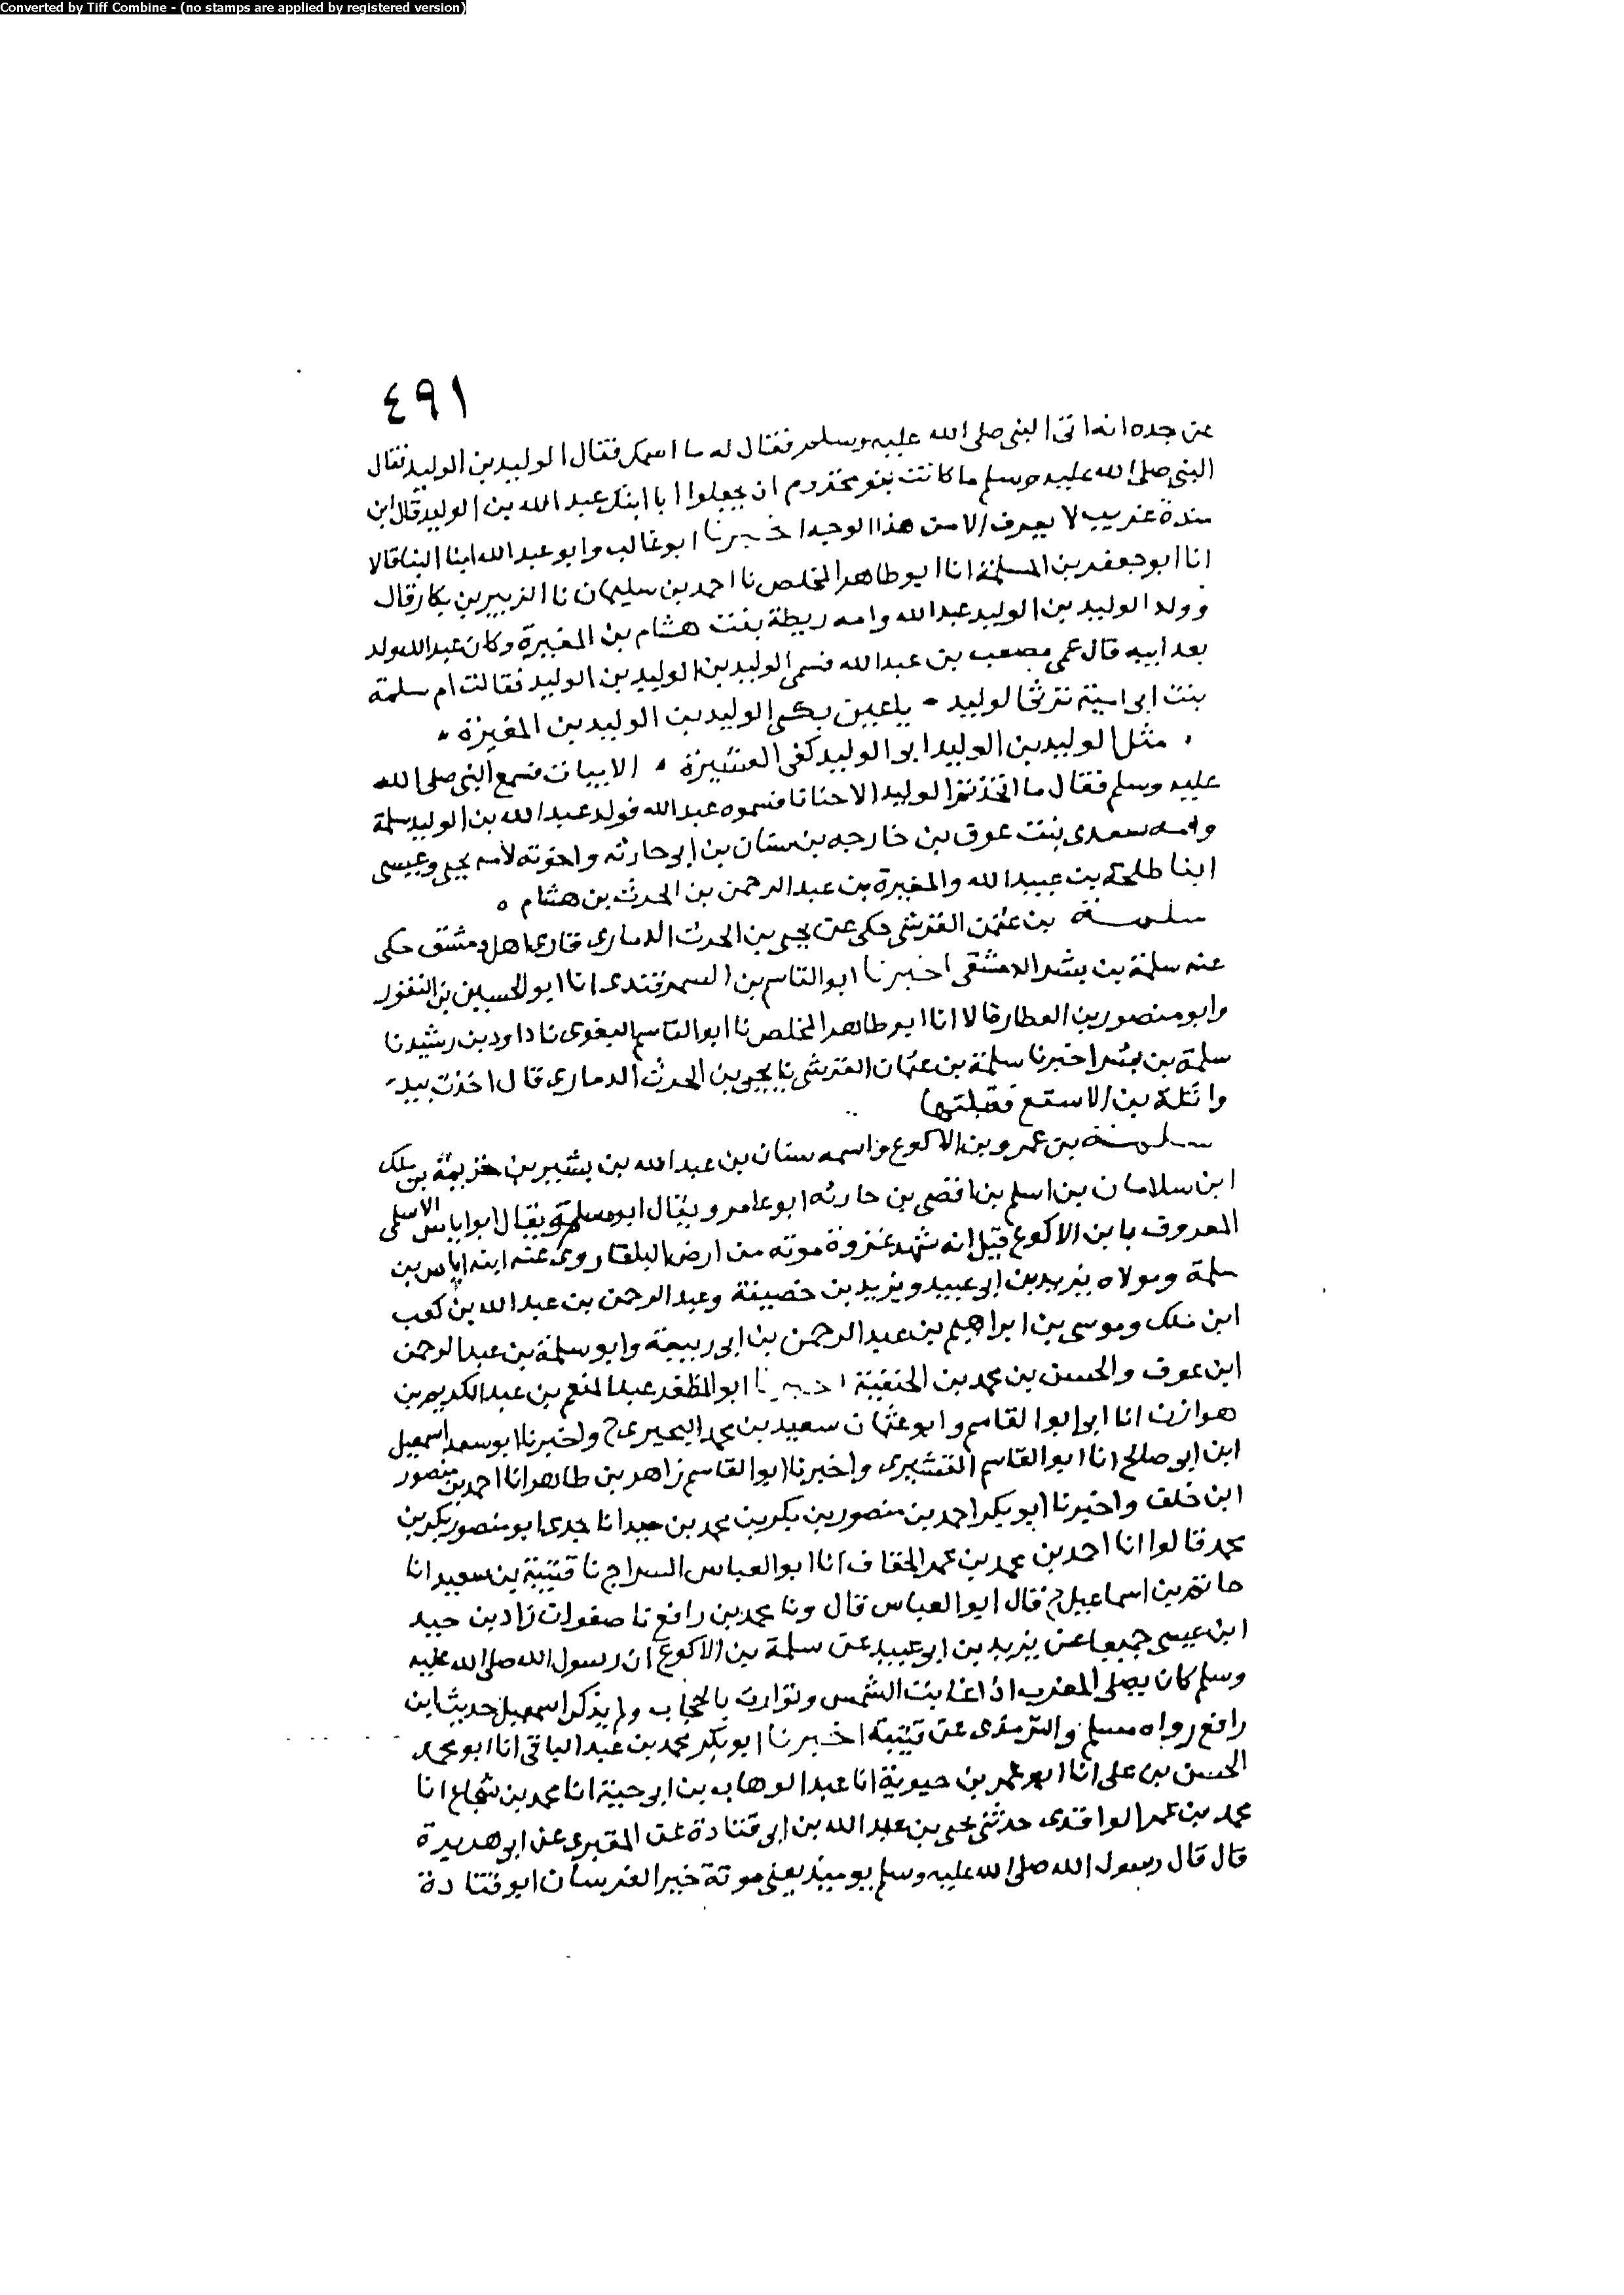 Converted by Tiff Combine - (no stamps are applied by registered version)
٤٩١
عن جده انه اتى النبي صلى الله عليه وسلم فقال له ما اسمك فقال الوليد بن الوليد فقال
النبي صلى الله عليه وسلم ما كانت بنو مخزوم ان يجعلوا ابا ابنك عبد الله بن الوليد قال ابن
مندة غريب لا يعرف الا من هذا الوجه اخبرنا ابو غالب وابو عبد الله ابنا البنا قالا
انا ابو جعفر بن المسلمة انا ابو طاهر المخلص نا احمد بن سليمان نا الزبير بن بكار قال
وولد الوليد بن الوليد عبد الله وامه ريطة بنت هشام بن المغيرة وكان عبد الله ولد
بعد ابيه قال عمي مصعب بن عبد الله فسمي الوليد بن الوليد بن الوليد فقالت ام سلمة
بنت ابي امية ترثي الوليد - يا عين بكي الوليد بن الوليد بن المغيرة
مثل الوليد بن الوليد ابي الوليد كفى العشيرة الابيات فسمع النبي صلى الله
عليه وسلم فقال ما اتخذتم الوليد الا حنانا فسموه عبد الله فولد عبد الله بن الوليد سلمة
وامه سعدى بنت عوف بن خارجه بن سنان بن ابي حارثه واخوته لامه يحيى وعيسى
ابنا طلحة بن عبيد الله والمغيرة بن عبد الرحمن بن الحرث بن هشام ه
سلمة بن عثمن القرشي حكى عن يحيى بن الحرث الدماري قارئ اهل دمشق حكى
عنه سلمة بن بشر الدمشقي اخبرنا ابو القاسم بن السمرقندي انا ابو الحسين بن النقور
وابو منصور بن العطار قالا انا ابو طاهر المخلص نا ابو القاسم البغوي نا داود بن رشيد نا
سلمة بن بشر اخبرنا سلمة بن عثمان القرشي نا يحيى بن الحرث الدماري قال اخذت بيد
واثلة بن الاسقع فقبلتها
سلمة بن عمرو بن الاكوع واسمه سنان بن عبد الله بن بشير بن خزيمة بن ملك
ابن سلامان بن اسلم بن افصى بن حارثه ابو عامر ويقال ابو مسلم ويقال ابو اياس الاسلمي
المعروف بابن الاكوع قيل انه شهد غزوة موته من ارض البلقا روى عنه ابنه اياس بن
سلمة ومولاه يزيد بن ابي عبيد ويزيد بن خصيفة وعبد الرحمن بن عبد الله بن كعب
ابن ملك وموسى بن ابراهيم بن عبد الرحمن بن ابي ربيعة وابو سلمة بن عبد الرحمن
ابن عوف والحسن بن محمد بن الحنفية اخبرنا ابو المظفر عبد المنعم بن عبد الكريم بن
هوازن انا ابي ابو القاسم وابو عثمان سعيد بن محمد البحيري ح واخبرنا ابو سعد اسمعيل
ابن ابي صالح انا ابو القاسم القشيري واخبرنا ابو القاسم زاهر بن طاهر انا احمد بن منصور
ابن خلف واخبرنا ابو بكر احمد بن منصور بن بكر بن محمد بن حيد انا جدي ابو منصور بكر بن
محمد قالوا انا احمد بن محمد بن عمر الخفاف انا ابو العباس السراج نا قتيبة بن سعيد انا
حاتم بن اسماعيل ح قال ابو العباس قال ونا محمد بن رافع نا صفوان زاد بن حيد
ابن عيسى جميعا عن يزيد بن ابي عبيد عن سلمة بن الاكوع ان رسول الله صلى الله عليه
وسلم كان يصلي المغرب اذا غابت الشمس وتوارت بالحجاب ولم يذكر اسمعيل حديث ابن
رافع رواه مسلم والترمذي عن قتيبة اخبرنا ابو بكر محمد بن عبد الباقي انا ابو محمد
الحسن بن علي انا ابو عمر بن حيوية انا عبد الوهاب بن ابي حية انا محمد بن شجاع انا
محمد بن عمر الواقدي حدثني يحيى بن عبد الله بن ابي قتادة عن المقبري عن ابي هريرة
قال قال رسول الله صلى الله عليه وسلم يوميذ يعني موتة خير الفرسان ابو قتادة